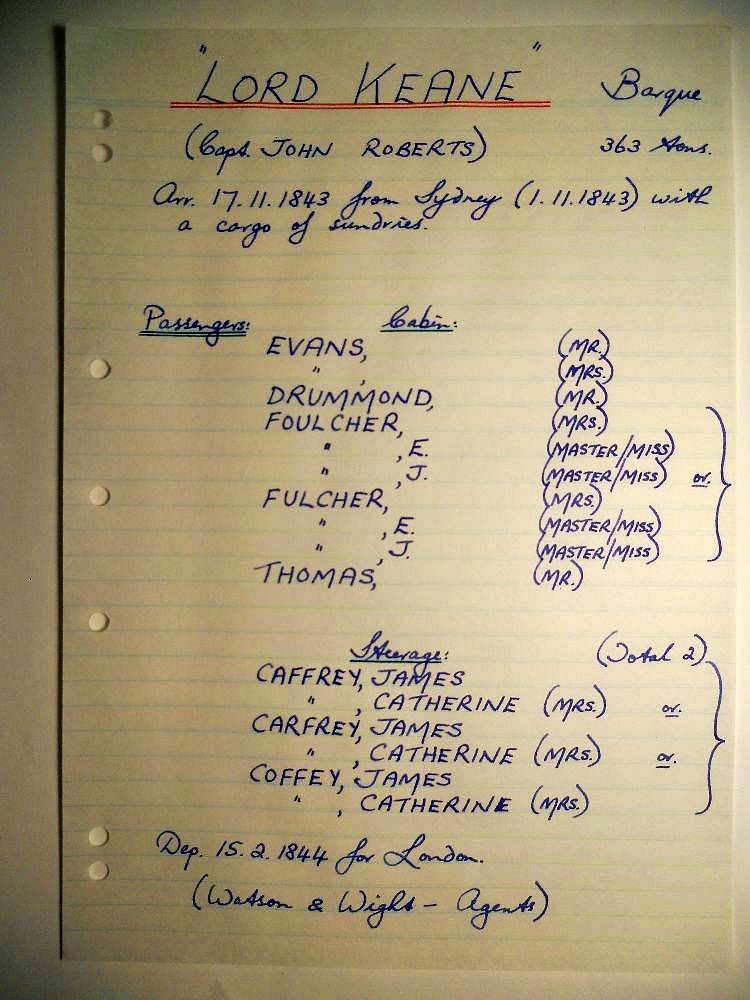 "LORD KEANE" Barque
(Capt. JOHN ROBERTS) 363 tons.
Arr. 17.11.1843 from Sydney (1.11.1843) with
a cargo of sundries.
Passengers: Cabin:
EVANS, (MR.)
" , (MRS.)
DRUMMOND, (MR.)
FOULCHER, (MRS.)
" , E. (MASTER/MISS)
" , J. (MASTER/MISS) or.
FULCHER, (MRS.)
" , E. (MASTER/MISS)
" , J. (MASTER/MISS)
THOMAS, (MR.)
Steerage: (Total 2)
CAFFREY, JAMES
" , CATHERINE (MRS.) or.
CARFREY, JAMES
" , CATHERINE (MRS.) or.
COFFEY, JAMES
" , CATHERINE (MRS.)
Dep. 15.2.1844 for London.
(Watson & Wight - Agents)